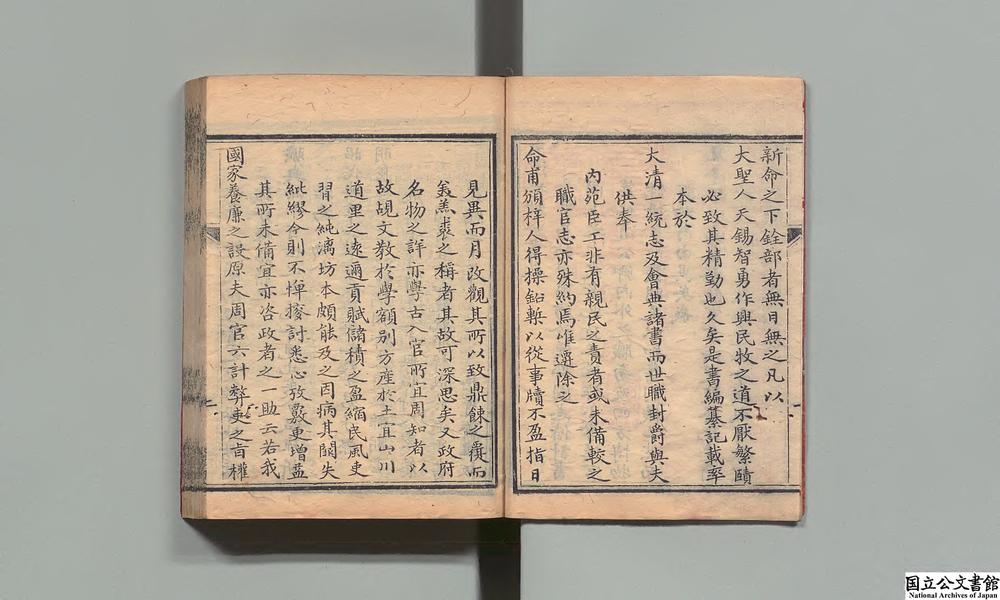 新命之下銓部者無日無之凡以
大聖人天錫智勇作興民牧之道不厭繁賾
必致其精勤也久矣是書編纂記載率
本於
大清一統志及會典諸書而世職封爵與夫
供奉
內苑臣工非有親民之責者或未備較之
職官志亦殊約焉惟遷除之
命甫頒梓人得操鉛槧以從事牘不盈指日
見異而月改觀其所以致鼎餗之覆而
羔裘之稱者其故可深思矣又政府
名物之詳亦學古入官所宜周知者以
故覘文教於學額别方產於土宜山川
道里之遠邇貢賦儲積之盈縮民風吏
習之純漓坊本頗能及之因病其闕失
紕繆今則不憚搜討悉心攷覈更增益
其所未備宜亦咨政者之一助云若我
國家養廉之設原夫周官六計弊吏之旨權
国立公文書館
National Archives of Japan